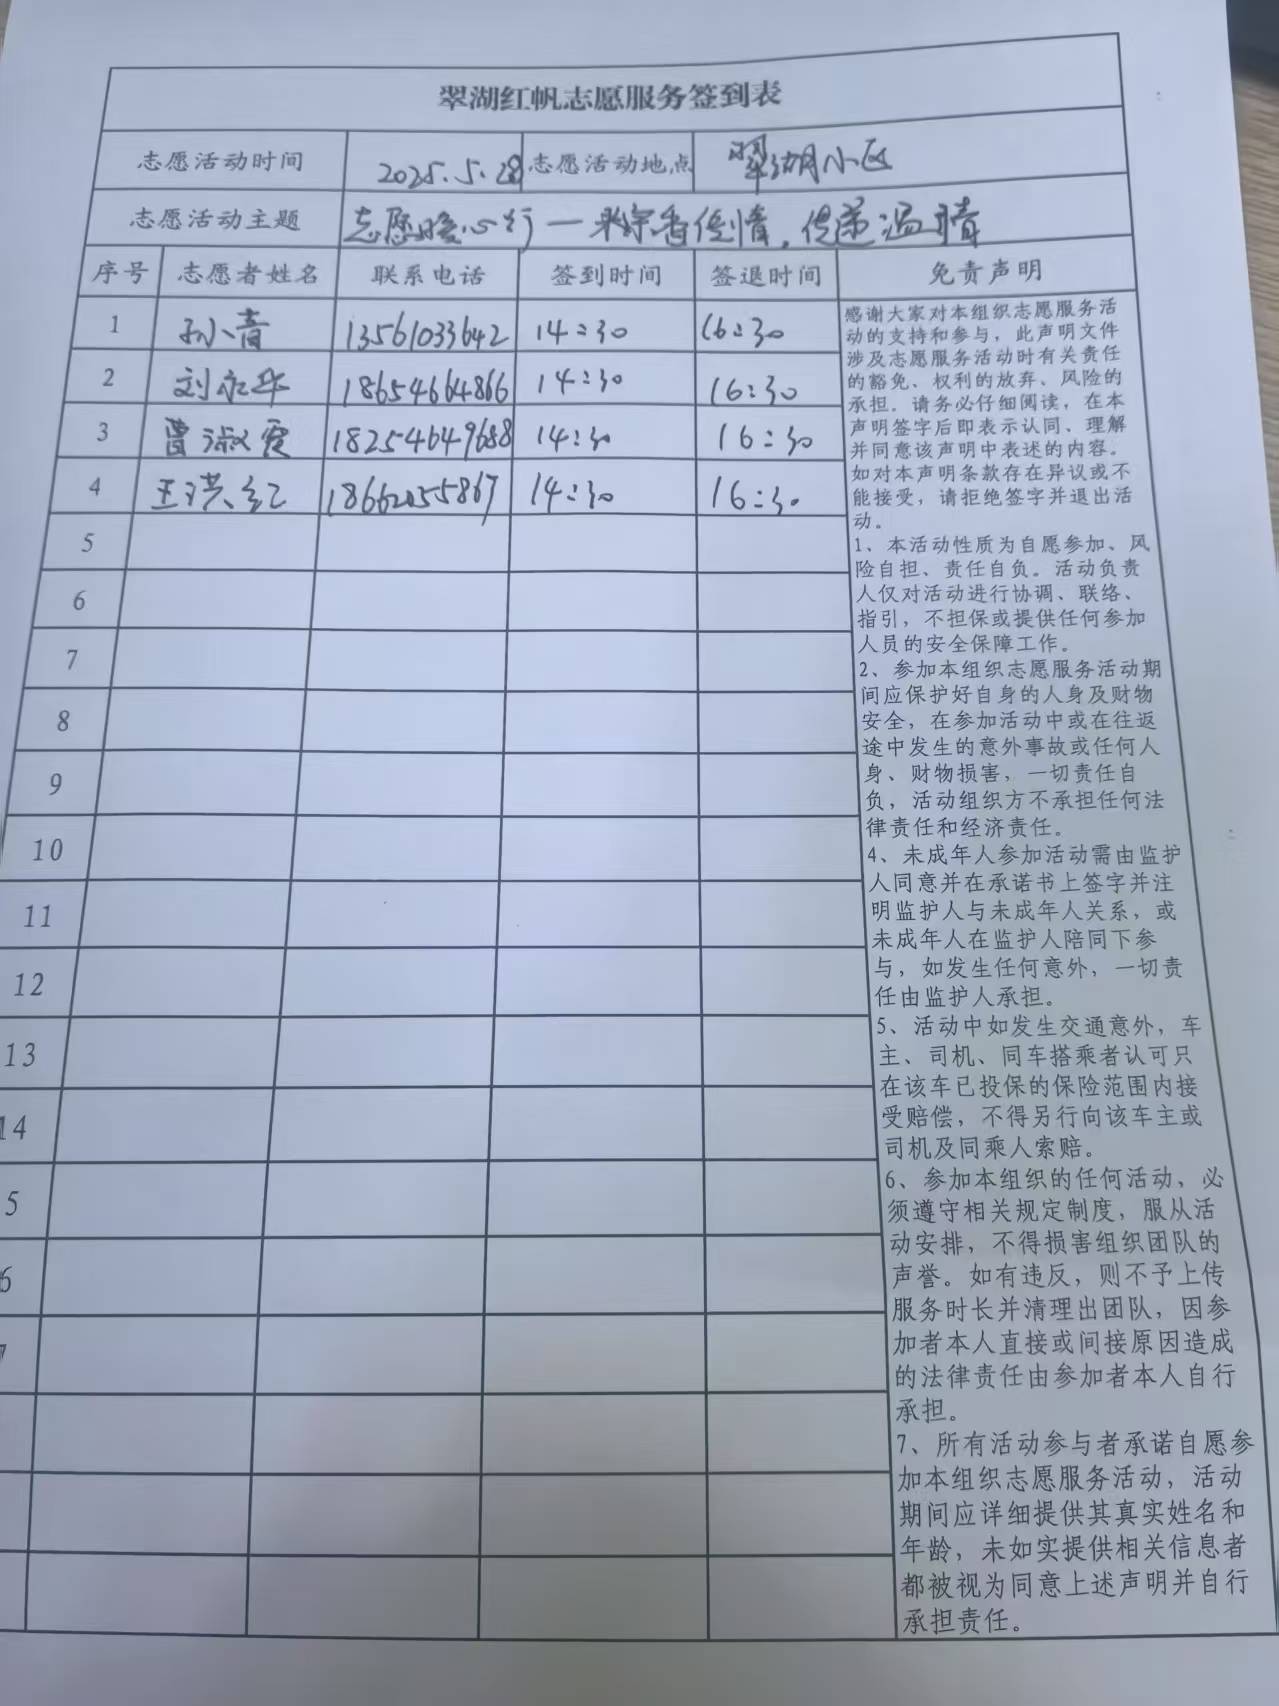 翠湖红帆志愿服务签到表
志愿活动时间 2025.5.28 志愿活动地点 翠湖小区
志愿活动主题 志愿暖心行一米粽香传情,传递温情
序号 志愿者姓名 联系电话 签到时间 签退时间 免责声明
1 孙小青 13561033642 14:30 16:30
2 刘永华 18654664866 14:30 16:30
3 曹淑霞 18254649688 14:30 16:30
4 王洪红 18662055867 14:30 16:30
5
6
7
8
9
10
11
12
13
14
5
6
7
感谢大家对本组织志愿服务活
动的支持和参与,此声明文件
涉及志愿服务活动时有关责任
的豁免、权利的放弃、风险的
承担。请务必仔细阅读,在本
声明签字后即表示认同、理解
并同意该声明中表述的内容。
如对本声明条款存在异议或不
能接受,请拒绝签字并退出活
动。
1、本活动性质为自愿参加、风
险自担、责任自负。活动负责
人仅对活动进行协调、联络、
指引,不担保或提供任何参加
人员的安全保障工作。
2、参加本组织志愿服务活动期
间应保护好自身的人身及财物
安全,在参加活动中或在往返
途中发生的意外事故或任何人
身、财物损害,一切责任自
负,活动组织方不承担任何法
律责任和经济责任。
4、未成年人参加活动需由监护
人同意并在承诺书上签字并注
明监护人与未成年人关系,或
未成年人在监护人陪同下参
与,如发生任何意外,一切责
任由监护人承担。
5、活动中如发生交通意外,车
主、司机、同车搭乘者认可只
在该车已投保的保险范围内接
受赔偿,不得另行向该车主或
司机及同乘人索赔。
6、参加本组织的任何活动,必
须遵守相关规定制度,服从活
动安排,不得损害组织团队的
声誉。如有违反,则不予上传
服务时长并清理出团队,因参
加者本人直接或间接原因造成
的法律责任由参加者本人自行
承担。
7、所有活动参与者承诺自愿参
加本组织志愿服务活动,活动
期间应详细提供其真实姓名和
年龄,未如实提供相关信息者
都被视为同意上述声明并自行
承担责任。